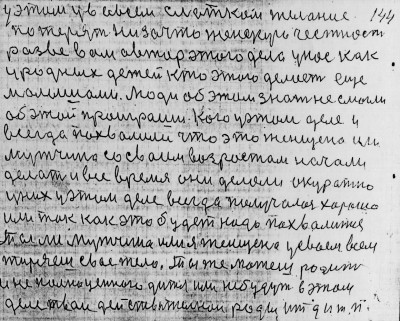 у этом изв овсем слаткой желание 144
потерят низачто женскую честности
разве вам автар этого дела у нас как
уродних детей кто этого делает еще
малышами. Люди об этом знат не смогли
об этой програми. Кого у этом деле и
всегда похвалили что это женщина или
мужчина со сваим возростом начали
делат и все время они делали окуратно
у них у этом деле всегда получалас харашо
или так как это будет надо похвалится
Если мужчина или я женщина у сваем всем
теряет сваё тело. Ты же можеш родит
и не полноценного дитя или небудут в этом
деле твои действителной родишит д и т. п.